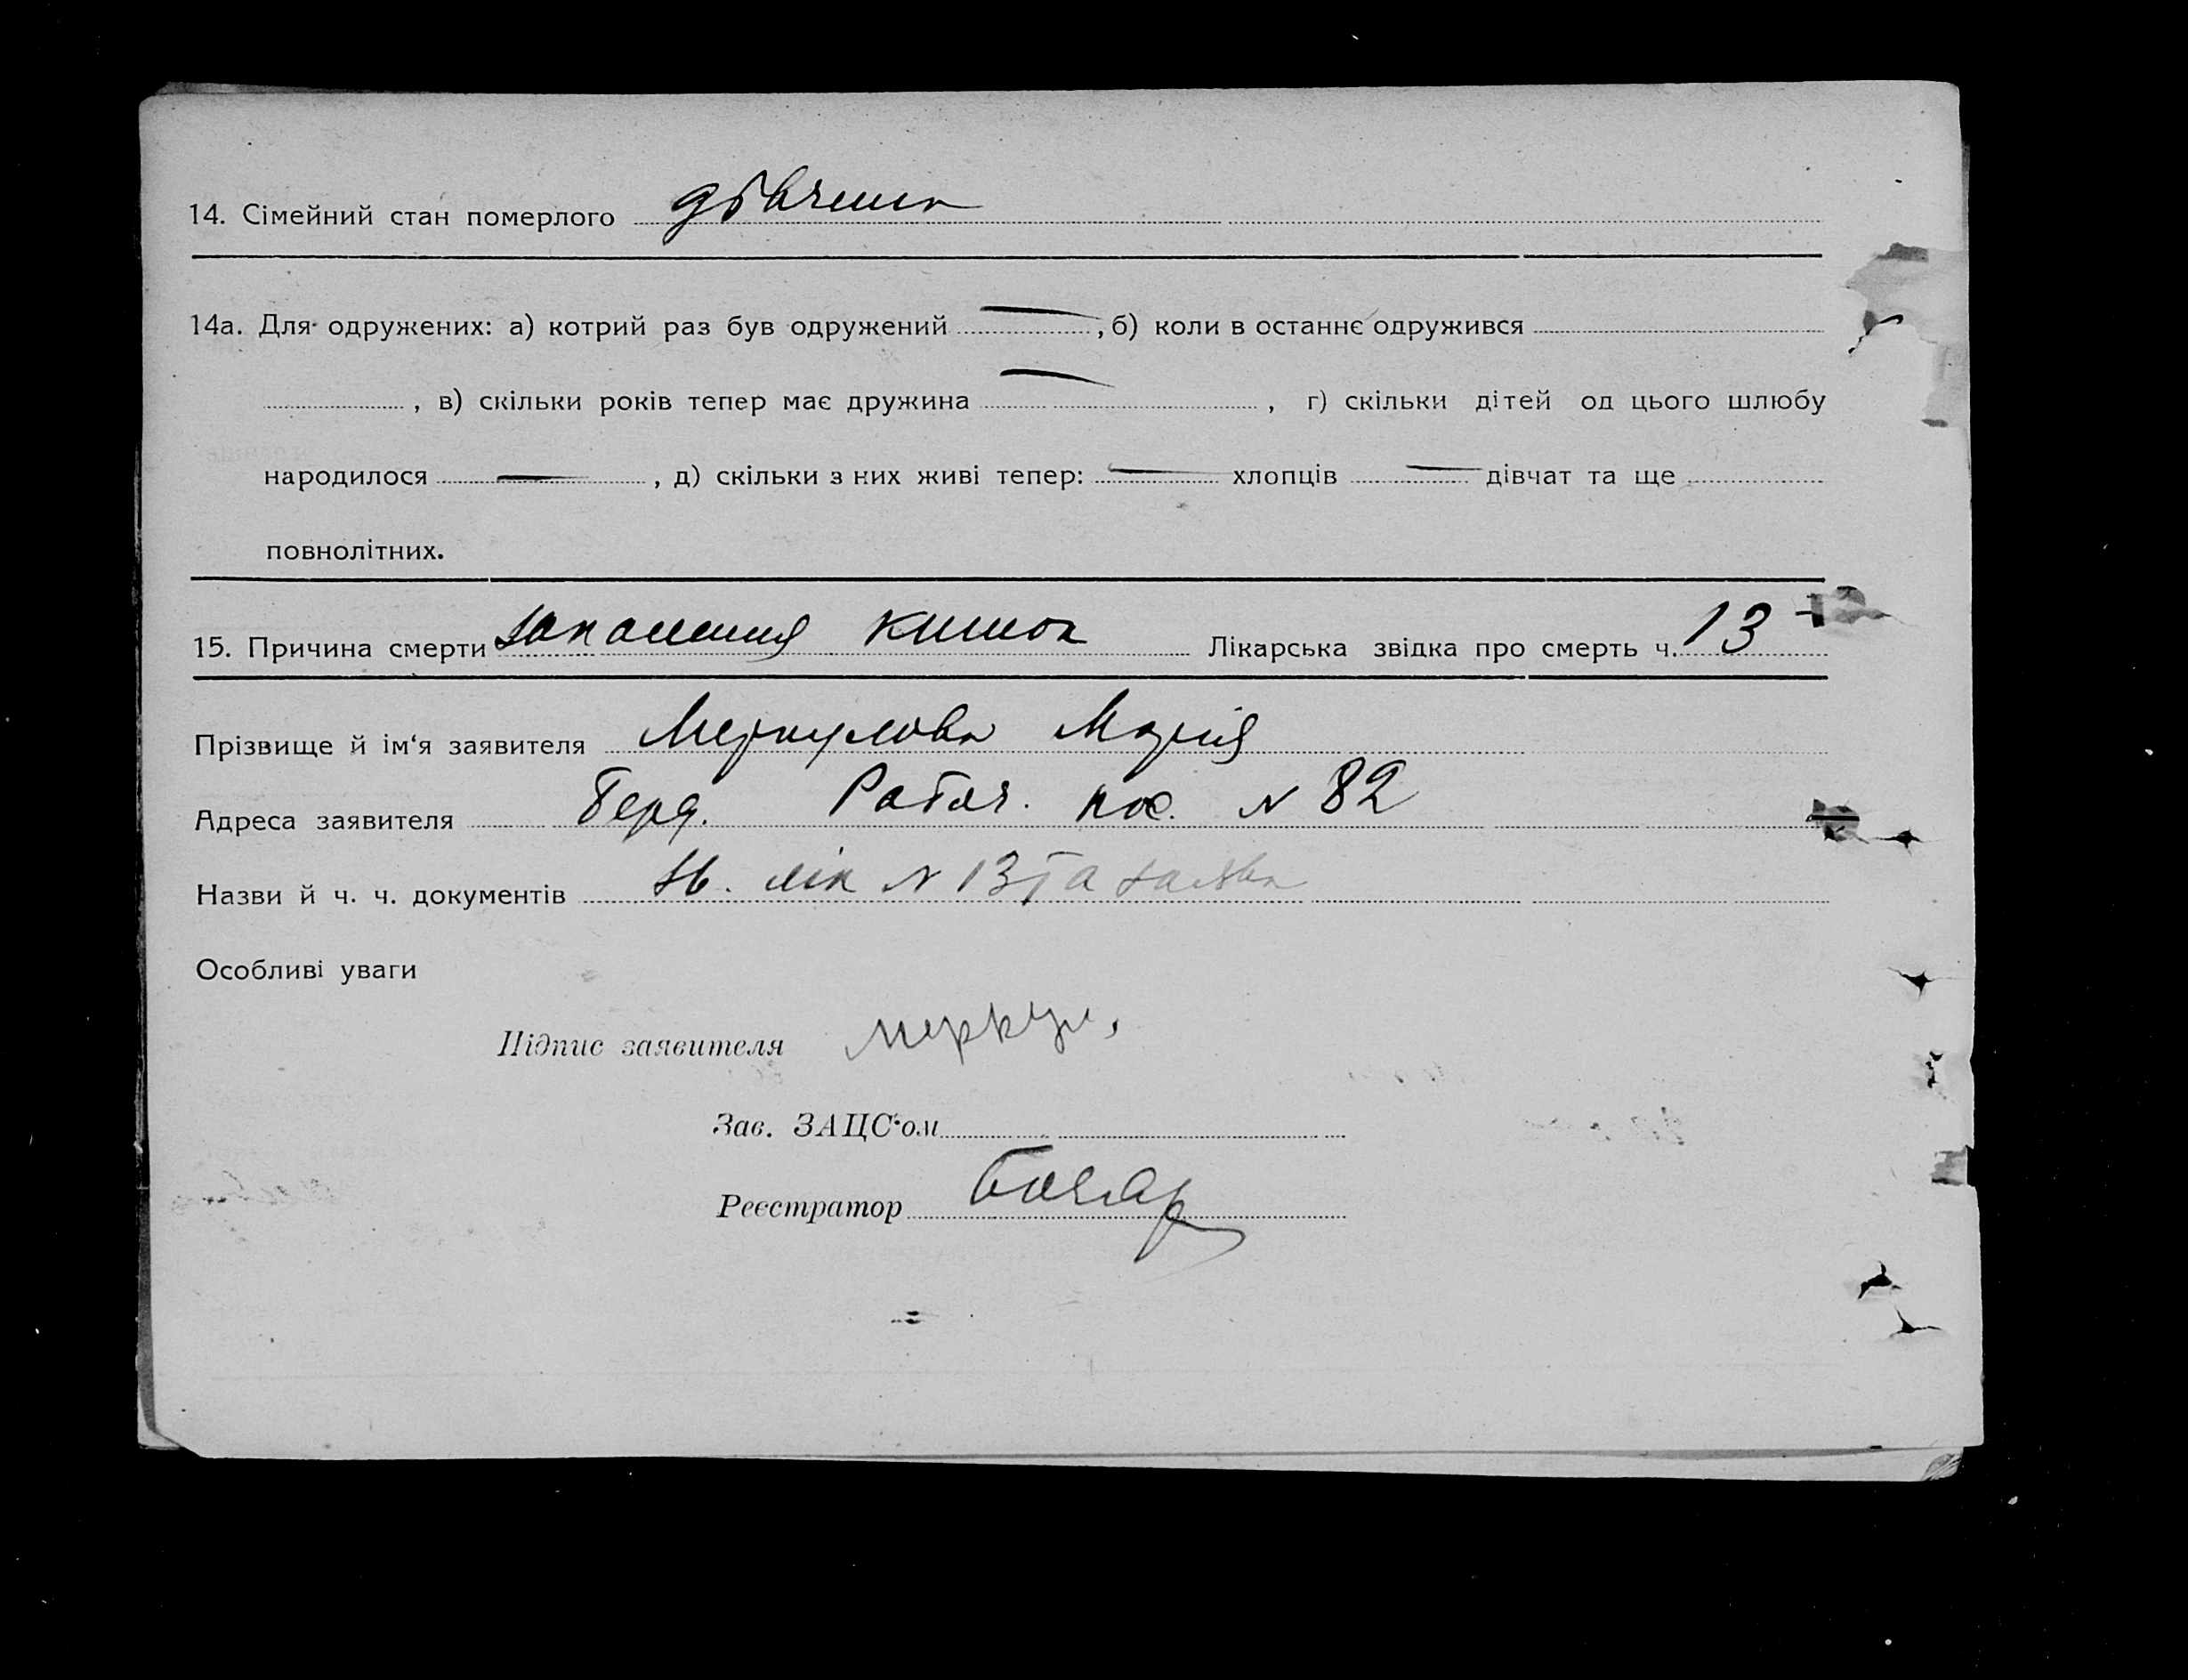 14. Сімейний стан померлого дівчина
14а. Для одружених: а) котрий раз був одружений — , б) коли в останнє одружився
, в) скільки років тепер має дружина — , г) скільки дітей од цього шлюбу
народилося — , д) скільки з них живі тепер: — хлопців — дівчат та ще
повнолітних.
15. Причина смерти запалення кишок Лікарська звідка про смерть ч. 13
Прізвище й ім'я заявителя Меркулова Марія
Адреса заявителя Берд. Рабоч. пос. № 82
Назви й ч. ч. документів зв. лік № 13 та заява
Особливі уваги
Підпис заявителя Меркул,
Зав. ЗАЦС-ом
Реєстратор